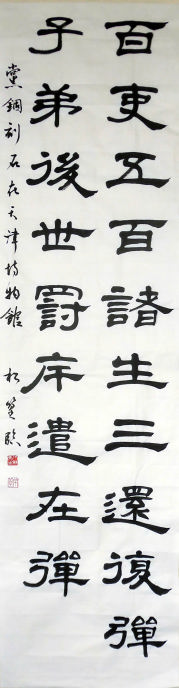 百吏五百諸生三還復彈
子弟後世罰斥遣在彈
黨錮刻石在天津博物館 松臨